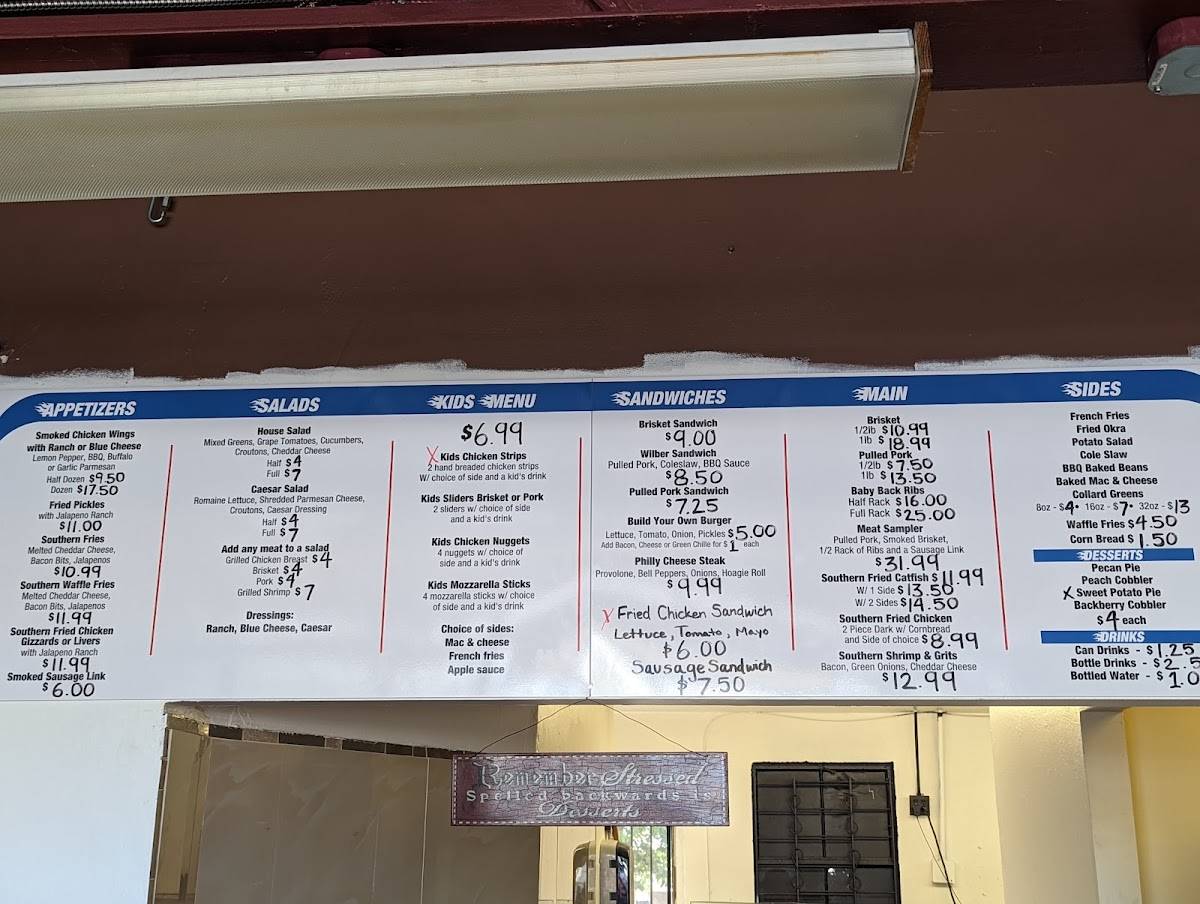 APPETIZERS
Smoked Chicken Wings
with Ranch or Blue Cheese
Lemon Pepper, BBQ, Buffalo
or Garlic Parmesan
Half Dozen $9.50
Dozen $17.50
Fried Pickles
with Jalapeno Ranch
$11.00
Southern Fries
Melted Cheddar Cheese,
Bacon Bits, Jalapenos
$10.99
Southern Waffle Fries
Melted Cheddar Cheese,
Bacon Bits, Jalapenos
$11.99
Southern Fried Chicken
Gizzards or Livers
with Jalapeno Ranch
$11.99
Smoked Sausage Link
$6.00
SALADS
House Salad
Mixed Greens, Grape Tomatoes, Cucumbers,
Croutons, Cheddar Cheese
Half $4
Full $7
Caesar Salad
Romaine Lettuce, Shredded Parmesan Cheese,
Croutons, Caesar Dressing
Half $4
Full $7
Add any meat to a salad
Grilled Chicken Breast $4
Brisket $4
Pork $4
Grilled Shrimp $7
Dressings:
Ranch, Blue Cheese, Caesar
KIDS MENU
$6.99
X Kids Chicken Strips
2 hand breaded chicken strips
W/ choice of side and a kid's drink
Kids Sliders Brisket or Pork
2 sliders w/ choice of side
and a kid's drink
Kids Chicken Nuggets
4 nuggets w/ choice of
side and a kid's drink
Kids Mozzarella Sticks
4 mozzarella sticks w/ choice
of side and a kid's drink
Choice of sides:
Mac & cheese
French fries
Apple sauce
SANDWICHES
Brisket Sandwich
$9.00
Wilber Sandwich
Pulled Pork, Coleslaw, BBQ Sauce
$8.50
Pulled Pork Sandwich
$7.25
Build Your Own Burger
Lettuce, Tomato, Onion, Pickles $5.00
Add Bacon, Cheese or Green Chille for $1 each
Philly Cheese Steak
Provolone, Bell Peppers, Onions, Hoagie Roll
$9.99
X Fried Chicken Sandwich
Lettuce, Tomato, Mayo
$6.00
Sausage Sandwich
$7.50
MAIN
Brisket
1/2lb $10.99
1lb $18.99
Pulled Pork
1/2lb $7.50
1lb $13.50
Baby Back Ribs
Half Rack $16.00
Full Rack $25.00
Meat Sampler
Pulled Pork, Smoked Brisket,
1/2 Rack of Ribs and a Sausage Link
$31.99
Southern Fried Catfish $11.99
W/ 1 Side $13.50
W/ 2 Sides $14.50
Southern Fried Chicken
2 Piece Dark w/ Cornbread
and Side of choice $8.99
Southern Shrimp & Grits
Bacon, Green Onions, Cheddar Cheese
$12.99
SIDES
French Fries
Fried Okra
Potato Salad
Cole Slaw
BBQ Baked Beans
Baked Mac & Cheese
Collard Greens
8oz - $4• 16oz - $7• 32oz - $13
Waffle Fries $4.50
Corn Bread $1.50
DESSERTS
Pecan Pie
Peach Cobbler
X Sweet Potato Pie
Backberry Cobbler
$4 each
DRINKS
Can Drinks - $1.25
Bottle Drinks - $2.5
Bottled Water - $1.0
Remember Stressed
Spelled backwards is
Desserts